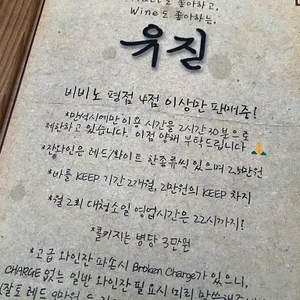 좋아하고,
Wine도 좋아하는,
유진
비비노 평점 4점 이상만 판매중!
*만석시에만 이용 시간을 2시간 30분으로
제한하고 있습니다. 이점 양해 부탁드립니다 🙏
*잔와인은 레드/화이트 한종류씩 있으며 2.3만원
*바틀 KEEP 기간 2개월, 2만원의 KEEP 차지
*월 2회 대청소일 영업시간은 22시까지!
*콜키지는 병당 3만원
*고급 와인잔 파손시 Broken Charge가 있으니,
CHARGE 없는 일반 와인잔 필요시 미리